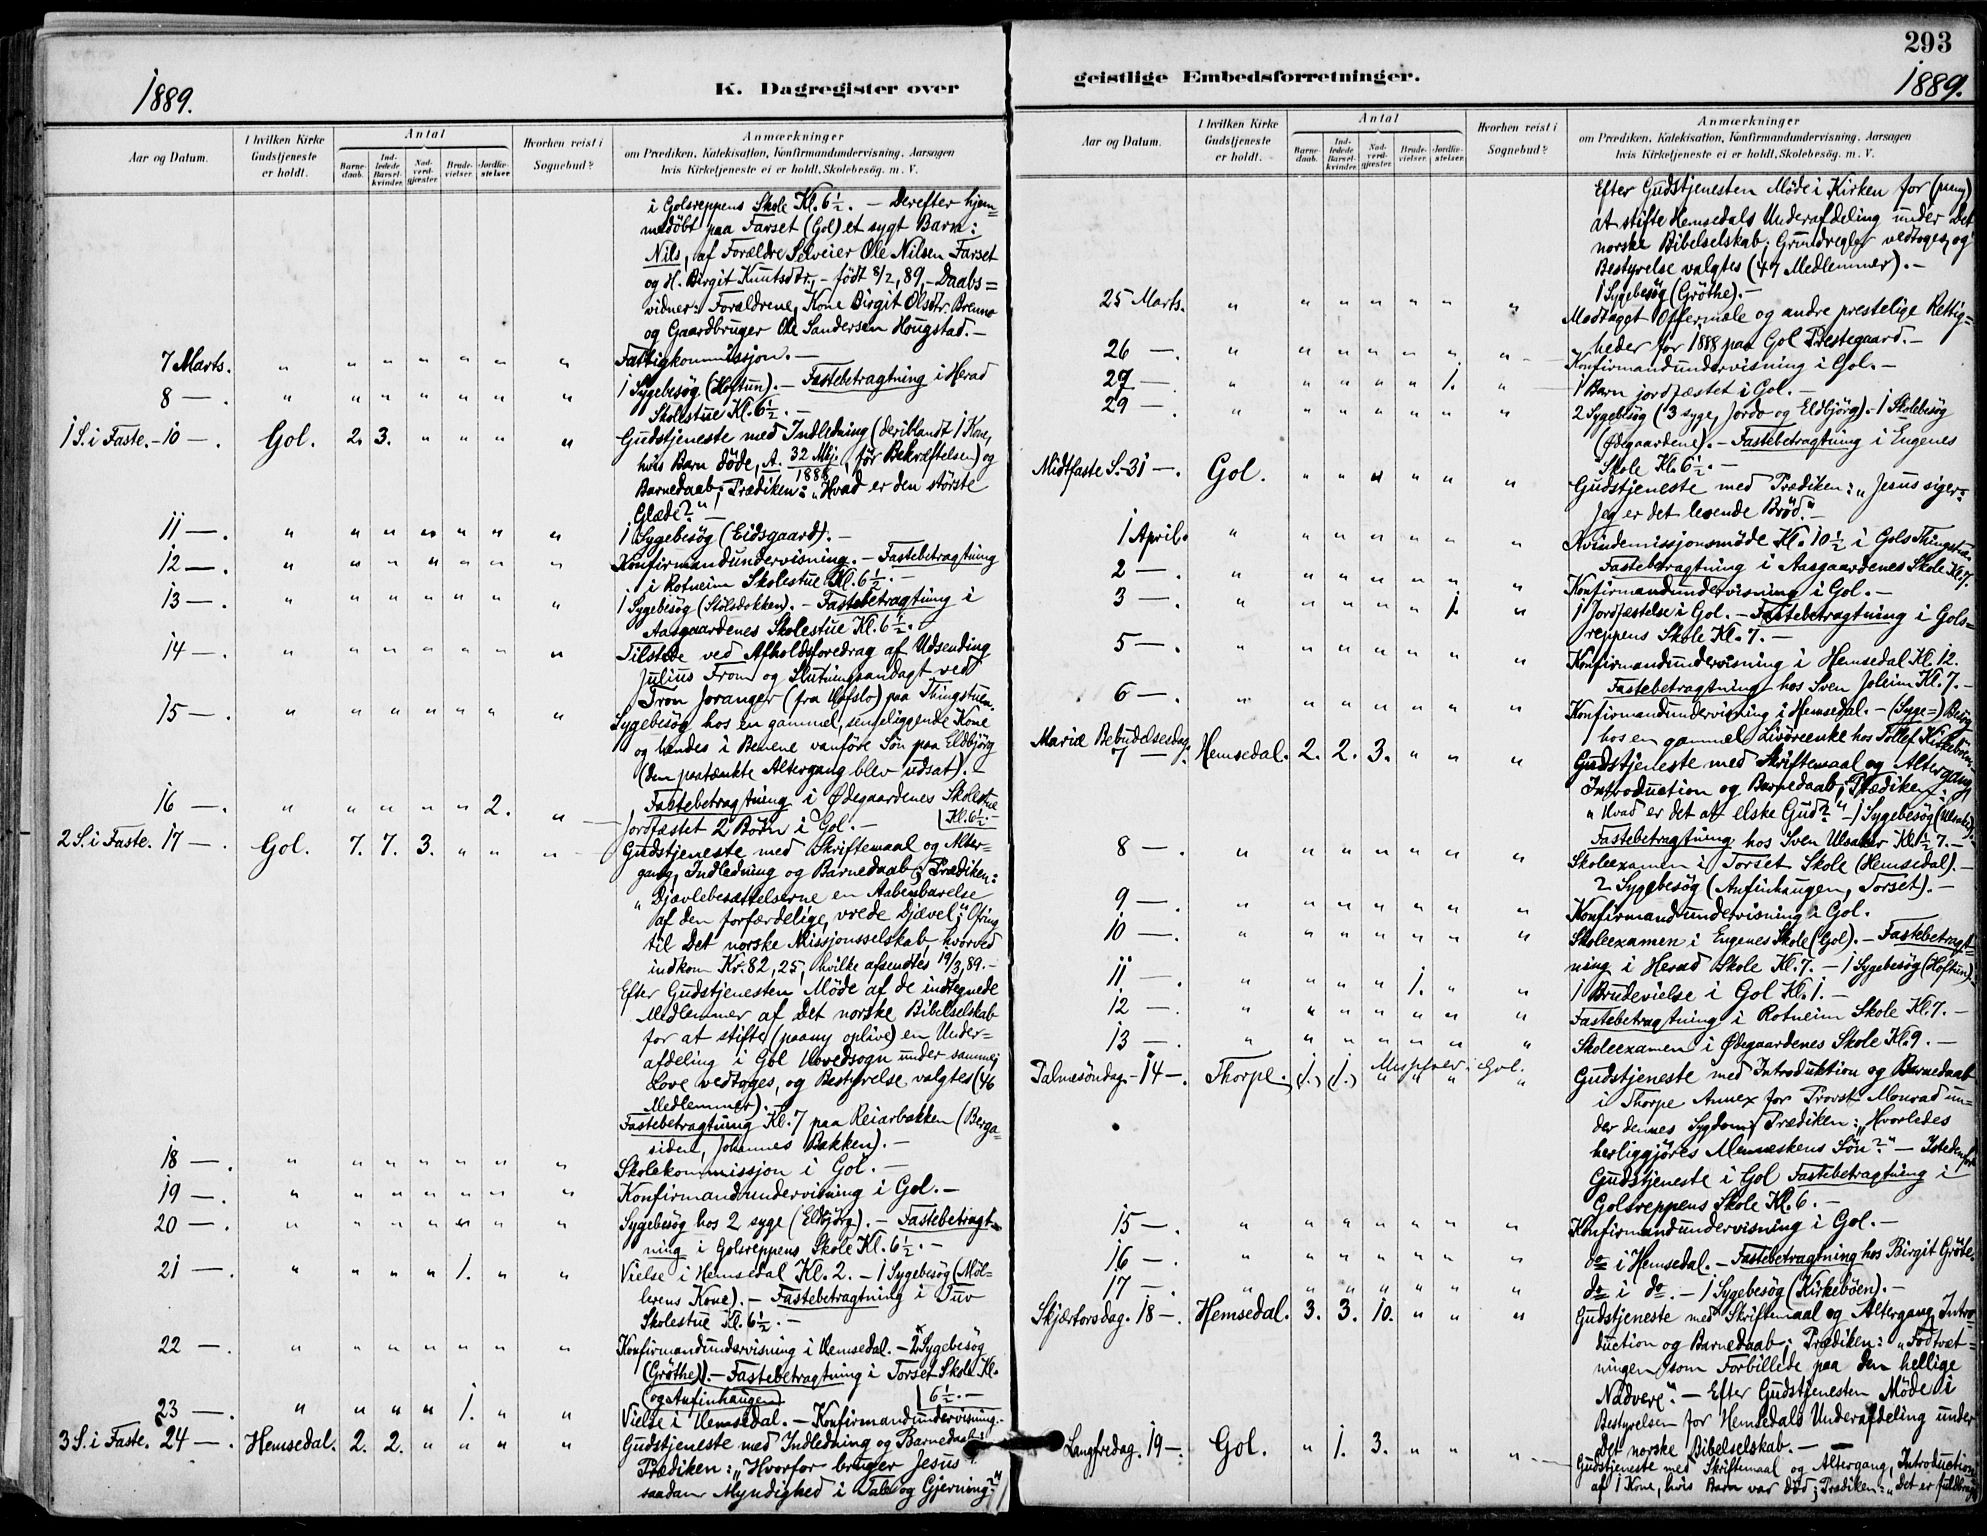 293
1889.
K. Dagregister over
geistlige Embedsforretninger.
1889.
Aar og Datum.
I hvilken Kirke Gudstjeneste er holdt.
Antal
Barnedaab.
Indledede Barselkvinder.
Nadverdgjester.
Brudevielser.
Jordfæstelser.
Hvorhen reist i Sognebud?
Anmærkninger
om Prædiken, Katekisation, Konfirmandundervisning. Aarsagen
hvis Kirketjeneste ei er holdt, Skolebesøg. m. V.
i Golsreppens Skole Kl. 6½. — Derefter hjem=
medöbt paa Farset (Gol) et sygt Barn:
Nils, af Forældre Selveier Ole Nilsen Farset
og H. Birgit Knutsdtr., - födt 8/2, 89, - Daabs=
vidner: Forældrene, Kone Birgit Olsdtr.
og Gaardbruger Ole Sandersen Hougstad. —
7 Marts. " " " " " " " Fattigkommissjon. —
8 — . " " " " " " " 1 Sygebesög (Hoftun). — Fastebetragtning i Herad
Skolestue Kl. 6½. —
1 S. i Faste. - 10 — . Gol. 2. 3. " " " " Gudstjeneste med Indledning (deriblandt 1 Kone,
hvis Barn döde, A. 32 Mkj. 1888, för Bekræftelsen) og
Barnedaab; Prædiken: "Hvad er den störste
Glæde?" —
11 — . " " " " " " " 1 Sygebesög (Eidsgaard). —
12 — . " " " " " " " Konfirmandundervisning. — Fastebetragtning
i Rotneim Skolestue Kl. 6½. —
13 — . " " " " " " " 1 Sygebesög (Stölsdokken). — Fastebetragtning i
Aasgaardenes Skolestue Kl. 6½.
14 — . " " " " " " " Tilstede ved Afholdsforedrag af Udsending
Julius From og Slutningsandagt ved
Tron Joranger (fra Hofslo) paa Thingstuen.
15 — . " " " " " " " Sygebesög hos en gammel, sengeliggende Kone
og hendes i Benene vanföre Sön paa Eldbjörg
(den paatænkte Altergang blev udsat). —
Fastebetragtning i Ødegaardenes Skolestue
Kl. 6½. —
16 — . " " " " " 2. " Jordfæstet 2 Börn i Gol. —
2 S. i Faste. 17 — . Gol. 7. 7. 3. " " " Gudstjeneste med Skriftemaal og Alter=
gang, Indledning og Barnedaab; Prædiken:
"Djævlebesættelserne en Aabenbarelse
af den forfærdelige, vrede Djævel"; Ofring
til Det norske Missjonsselskab hvorved
indkom Kr. 82,25, hvilke afsendtes 19/3, 89. —
Efter Gudstjenesten Möde af de indtegnede
Medlemmer af Det norske Bibelselskab
for at stifte (paany oplive) en Under=
afdeling i Gol Hovedsogn under samme;
Love vedtoges, og Bestyrelse valgtes (46
Medlemmer).
Fastebetragtning Kl. 7 paa Reiarbakken (Berga=
siden, Johannes Bakken). —
18 — . " " " " " " " Skolekommissjon i Gol. —
19 — . " " " " " " " Konfirmandundervisning i Gol. —
20 — . " " " " " " " Sygebesög hos 2 syge (Eldbjörg). — Fastebetragt=
ning i Golsreppens Skole Kl. 6½. —
21 — . " " " " 1. " " Vielse i Hemsedal Kl. 2. — 1 Sygebesög (Möl=
lerens Kone). — Fastebetragtning i Tuv
Skolestue Kl. 6½. —
22 — . " " " " " " " Konfirmandundervisning i Hemsedal. — 2 Sygebesög
(Gröthe). — Fastebetragtning i Torset Skole Kl.
(og Anfinhaugen) 6½. —
23 — . " " " " 1. " " Vielse i Hemsedal. — Konfirmandundervisning. —
3 S. i Faste. 24 — . Hemsedal. 2. 2. " " " " Gudstjeneste med Indledning og Barnedaab;
Prædiken: "Hvorfor bruger Jesus
saadan Myndighed i Tale og Gjerning?"
Aar og Datum.
I hvilken Kirke Gudstjeneste er holdt.
Antal
Barnedaab.
Indledede Barselkvinder.
Nadverdgjester.
Brudevielser.
Jordfæstelser.
Hvorhen reist i Sognebud?
Anmærkninger
om Prædiken, Katekisation, Konfirmandundervisning. Aarsagen
hvis Kirketjeneste ei er holdt, Skolebesøg. m. V.
Efter Gudstjenesten Möde i Kirken for (paany)
at stifte Hemsedals Underafdeling under Det
norske Bibelselskab; Grundregler vedtoges, og
Bestyrelse valgtes (47 Medlemmer). —
1 Sygebesög (Gröthe). —
25 Marts. " " " " " " " Modtaget Offermæle og andre prestelige Rettig=
heder for 1888 paa Gol Prestegaard. —
26 — . " " " " " " " Konfirmandundervisning i Gol. —
27 — . " " " " " 1. " 1 Barn jordfæstet i Gol. —
29 — . " " " " " " " 2 Sygebesög (3 syge, Jordo og Eldbjörg). - 1 Skolebesög
(Ødegaardene). — Fastebetragtning i Engenes
Skole Kl. 6½. —
Midtfaste S. - 31 — . Gol. " " " " " " Gudstjeneste med Prædiken: "Jesus siger:
Jeg er det levende Bröd." —
1 April. " " " " " " " Kvindemissjonsmöde Kl. 10½ i Gols Thingstue.
Fastebetragtning i Aasgaardenes Skole Kl. 7.
2 — . " " " " " " " Konfirmandundervisning i Gol. —
3 — . " " " " " 1. " 1 Jordfæstelse i Gol. — Fastebetragtning i Gols=
reppens Skole Kl. 7. —
5 — . " " " " " " " Konfirmandundervisning i Hemsedal Kl. 12.
Fastebetragtning hos Sven Joleim Kl. 7. —
6 — . " " " " " " " Konfirmandundervisning i Hemsedal. — (Syge=) Besög
hos en gammel Livöreenke hos Tollef Kirkeböen.
Mariæ Bebudelsesdag.
7 — . Hemsedal. 2. 2. 3. " " " Gudstjeneste med Skriftemaal og Altergang,
Introduction og Barnedaab; Prædiken:
"Hvad er det at elske Gud?" — 1 Sygebesög (Ulsaker).
Fastebetragtning hos Sven Ulsaker Kl. ½ 7. —
8 — . " " " " " " " Skoleexamen i Torset Skole (Hemsedal). —
2 Sygebesög (Anfinhaugen, Torset). —
9 — . " " " " " " " Konfirmandundervisning i Gol.
10 — . " " " " " " " Skoleexamen i Engenes Skole (Gol). — Fastebetragt=
ning i Herad Skole Kl. 7. — 1 Sygebesög (Hoftun).
11 — . " " " " 1. " " 1 Brudevielse i Gol Kl. 1. —
12 — . " " " " " " " Fastebetragtning i Rotneim Skole Kl. 7. —
13 — . " " " " " " " Skoleexamen i Ødegaardenes Skole Kl. 9. —
Palmesöndag - 14 — . Thorpe. (1.) (1.) " " " Gol. Gudstjeneste med Introduktion og Barnedaab
i Thorpe Annex for Provst Monrad un=
der dennes Sygdom; Prædiken: "Hvorledes
herliggjöres Menneskens Sön?" — Istedenfor
Gudstjeneste i Gol Fastebetragtning i
Golsreppens Skole Kl. 6. —
15 — . " " " " " " " Konfirmandundervisning i Gol. —
16 — . " " " " " " " do i Hemsedal. — Fastebetragtning hos Birgit Gröte.
17 — . " " " " " " " do i do. — 1 Sygebesög (Kirkeböen). —
Skjærtorsdag. 18 — . Hemsedal. 3. 3. 10. " " " Gudstjeneste med Skriftemaal og Altergang, Intro=
duction og Barnedaab; Prædiken: "Fodtvæt=
ningen som Forbillede paa den hellige
Nadvere". — Efter Gudstjenesten Möde i
Bestyrelsen for Hemsedals Underafdeling under
Det norske Bibelselskab. —
Langfredag. 19 — . Gol. " 1. 3. " " " Gudstjeneste med Skriftemaal og Altergang, Introduction
af 1 Kone, hvis Barn var död; Prædiken: "Det er fuldbragt